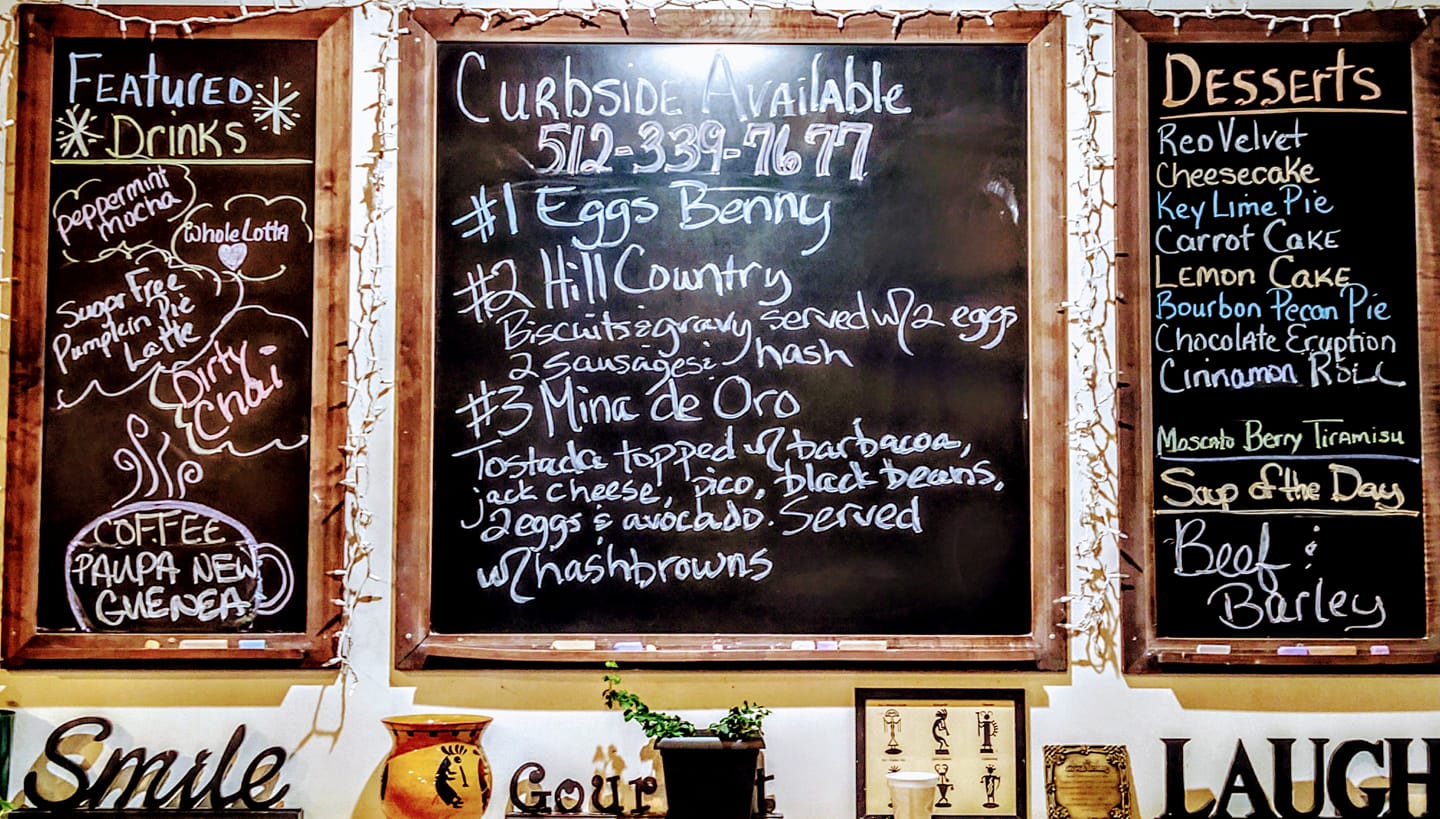 Featured
Drinks
peppermint
mocha
Whole Lotta
Sugar Free
Pumpkin Pie
Latte
Dirty
Chai
COFFEE
PAUPA NEW
GUENEA
Curbside Available
512-339-7677
#1 Eggs Benny
#2 Hill Country
Biscuits & gravy served w/ 2 eggs
2 sausages & hash
#3 Mina de Oro
Tostada topped w/ barbacoa,
jack cheese, pico, black beans,
2 eggs & avocado. Served
w/ hashbrowns
Desserts
Red Velvet
Cheesecake
Key Lime Pie
Carrot Cake
Lemon Cake
Bourbon Pecan Pie
Chocolate Eruption
Cinnamon Roll
Moscato Berry Tiramisu
Soup of the Day
Beef &
Barley
Smile
Gour t
LAUGH